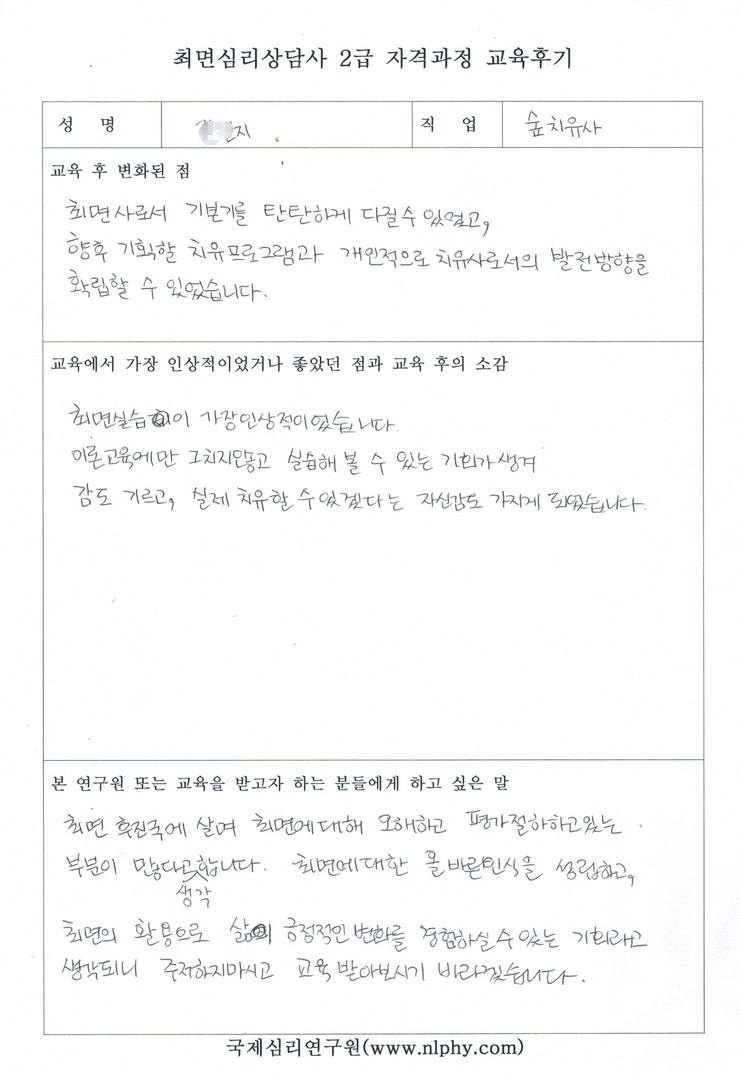 최면심리상담사 2급 자격과정 교육후기
성 명 지 직 업 숲치유사
교육 후 변화된 점
최면사로서 기본기를 탄탄하게 다질수 있었고,
향후 기획할 치유프로그램과 개인적으로 치유사로서의 발전방향을
확립할 수 있었습니다.
교육에서 가장 인상적이었거나 좋았던 점과 교육 후의 소감
최면실습이 가장인상적이었습니다.
이론교육에만 그치지않고 실습해 볼 수 있는 기회가생겨
감도 기르고, 실제 치유할 수있겠다는 자신감도 가지게 되었습니다.
본 연구원 또는 교육을 받고자 하는 분들에게 하고 싶은 말
최면 후진국에 살며 최면에대해 오해하고 평가절하하고있는
부분이 많다고 생각합니다. 최면에대한 올바른인식을 성립하고,
최면의 활용으로 삶의 긍정적인 변화를 경험하실 수있는 기회라고
생각되니 주저하지마시고 교육 받아보시기 바라겠습니다.
국제심리연구원(www.nlphy.com)